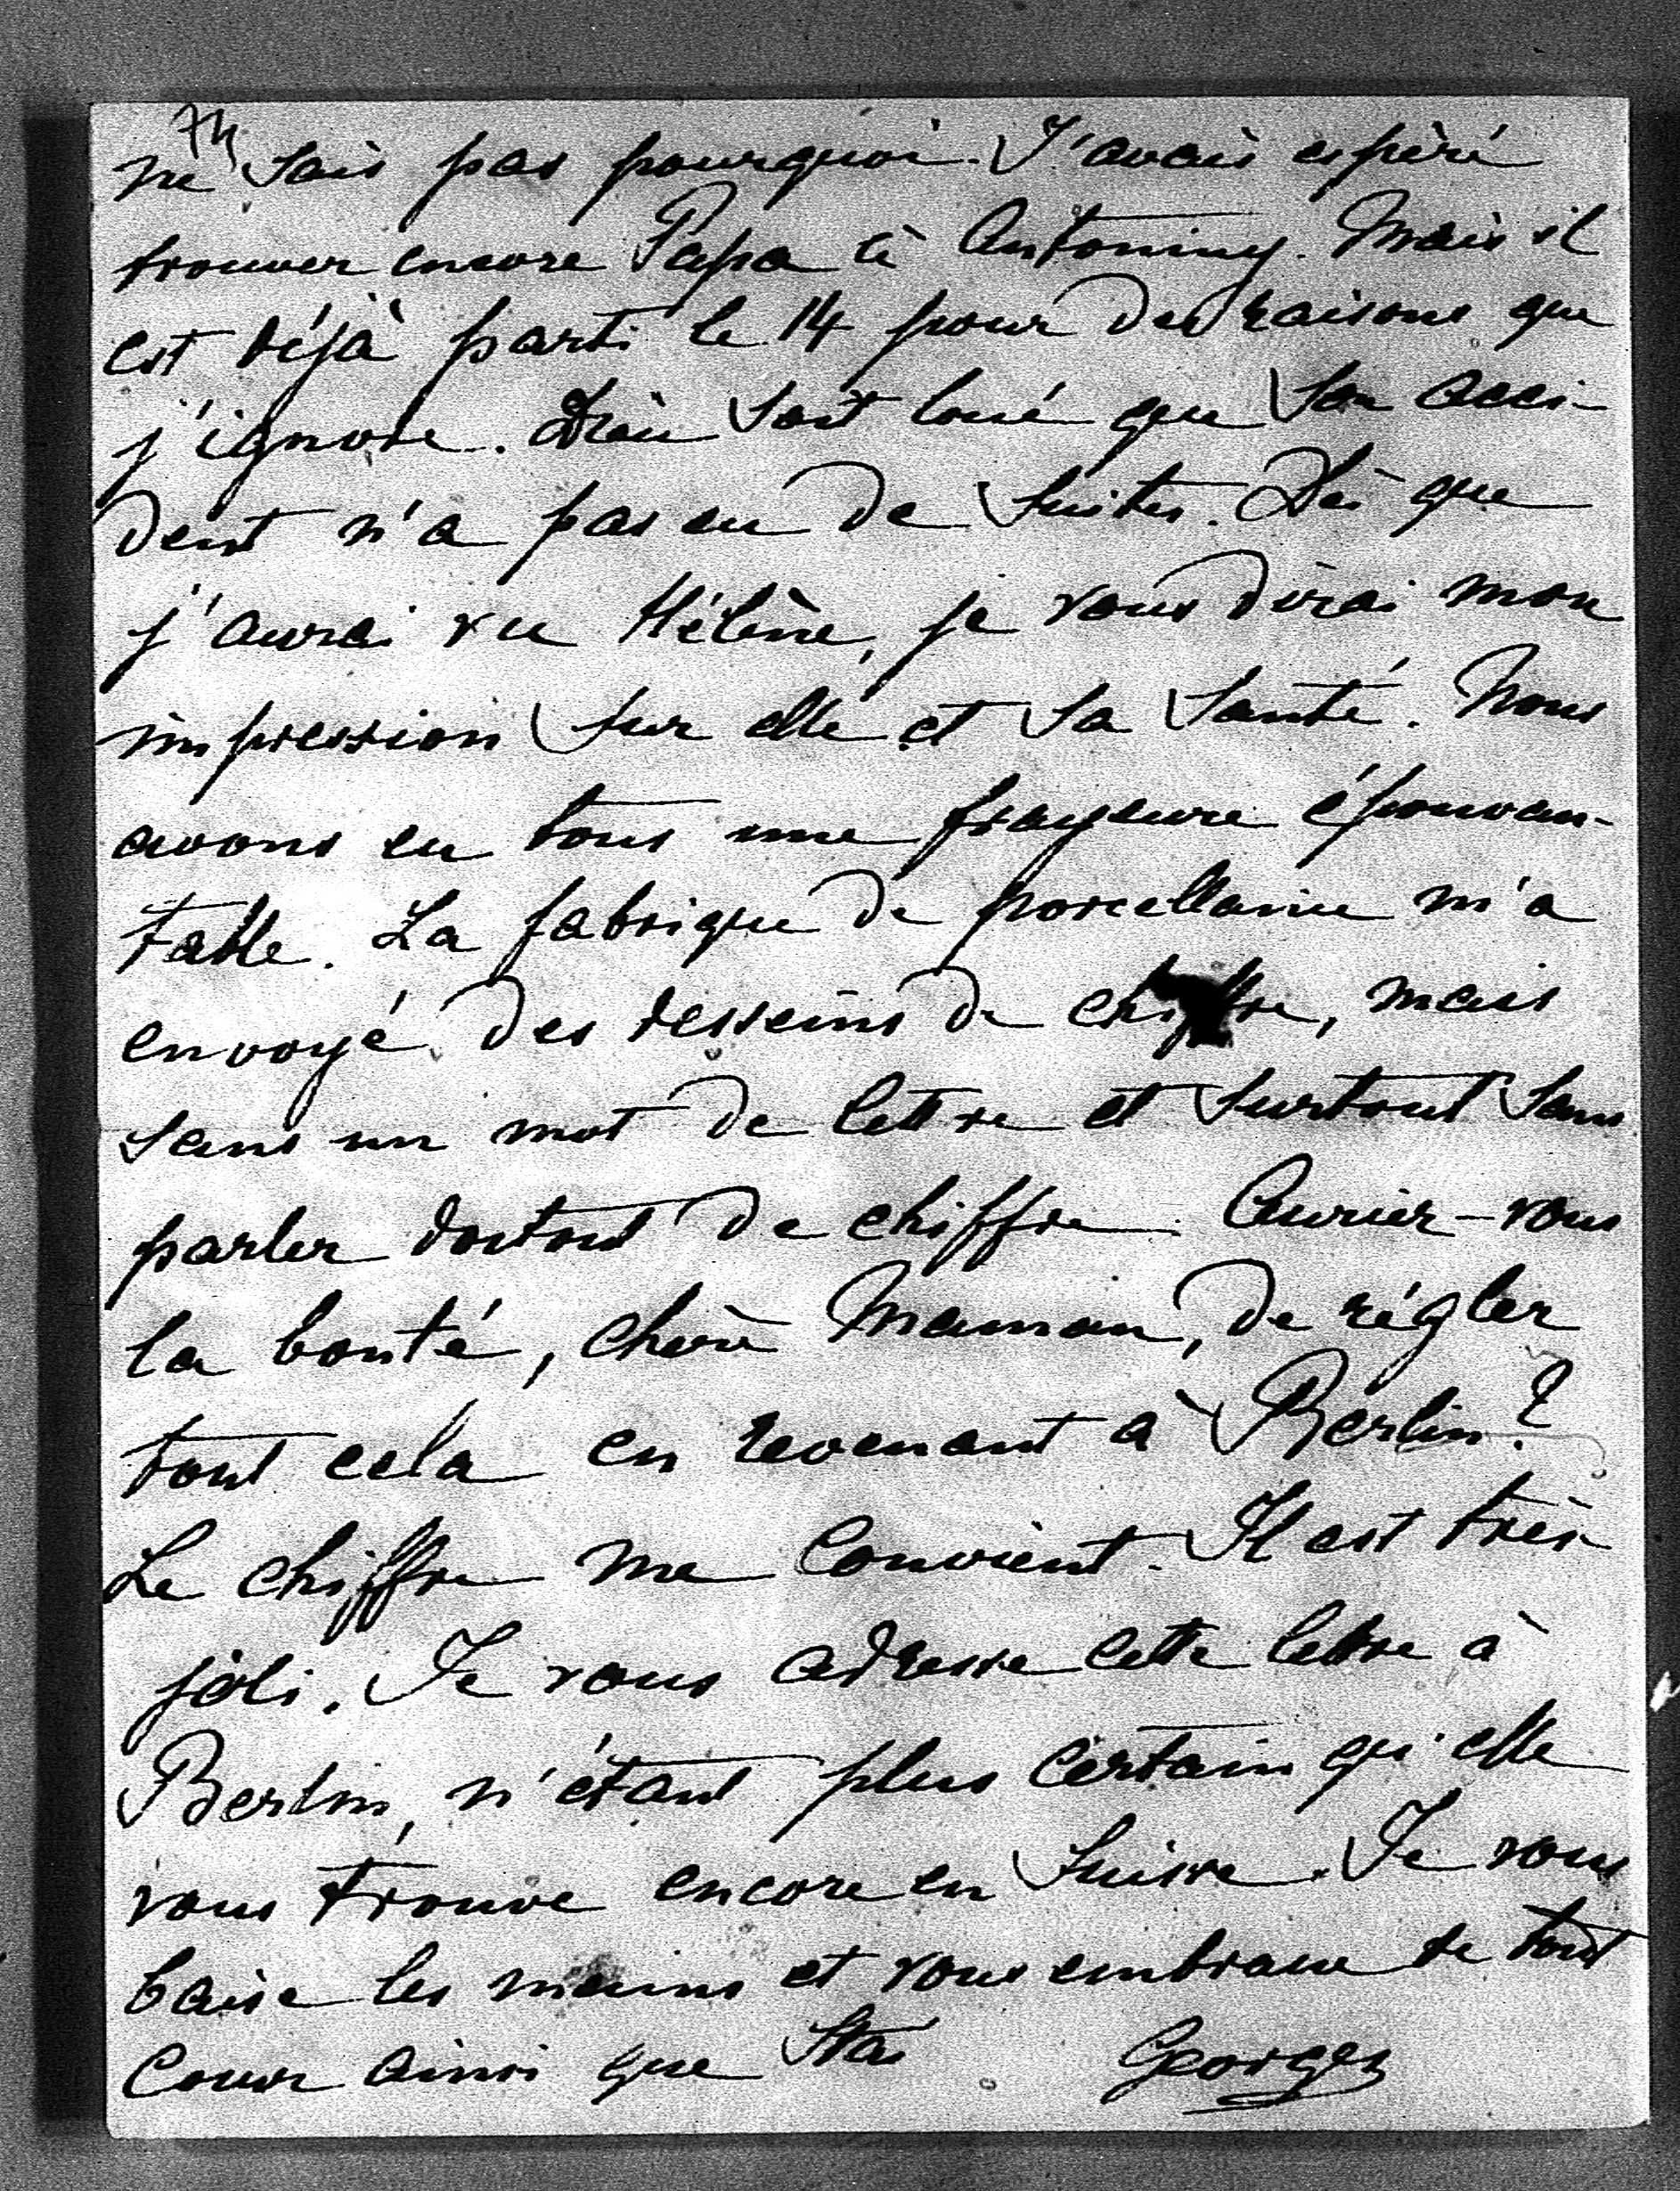 74
ne sais pas pourquoi. J'avais espéré
trouver encore Papa à Antoniny. Mais il
est déjà parti le 14 pour des raisons que
j'ignore. Dieu soit loué que son acci-
dent n'a pas eu de suites. Dès que
j'aurai vu Hélène, je vous dirai mon
impression sur elle et sa santé. Nous
avons eu tous une frayeure épouvan-
table. La fabrique de porcellaine m'a
envoyé des desseins de chiffre, mais
sans un mot de lettre et surtout sans
parler du tout de chiffre. Auriez-vous
la bonté, chère Maman, de régler
tout cela en revenant à Berlin?
Le chiffre me convient. Il est très
joli. Je vous adresse cette lettre à
Berlin, n'étant plus certain qu'elle
vous trouve encore en Suisse. Je vous
baise les mains et vous embrasse de tout
coeur ainsi que Stas Georges